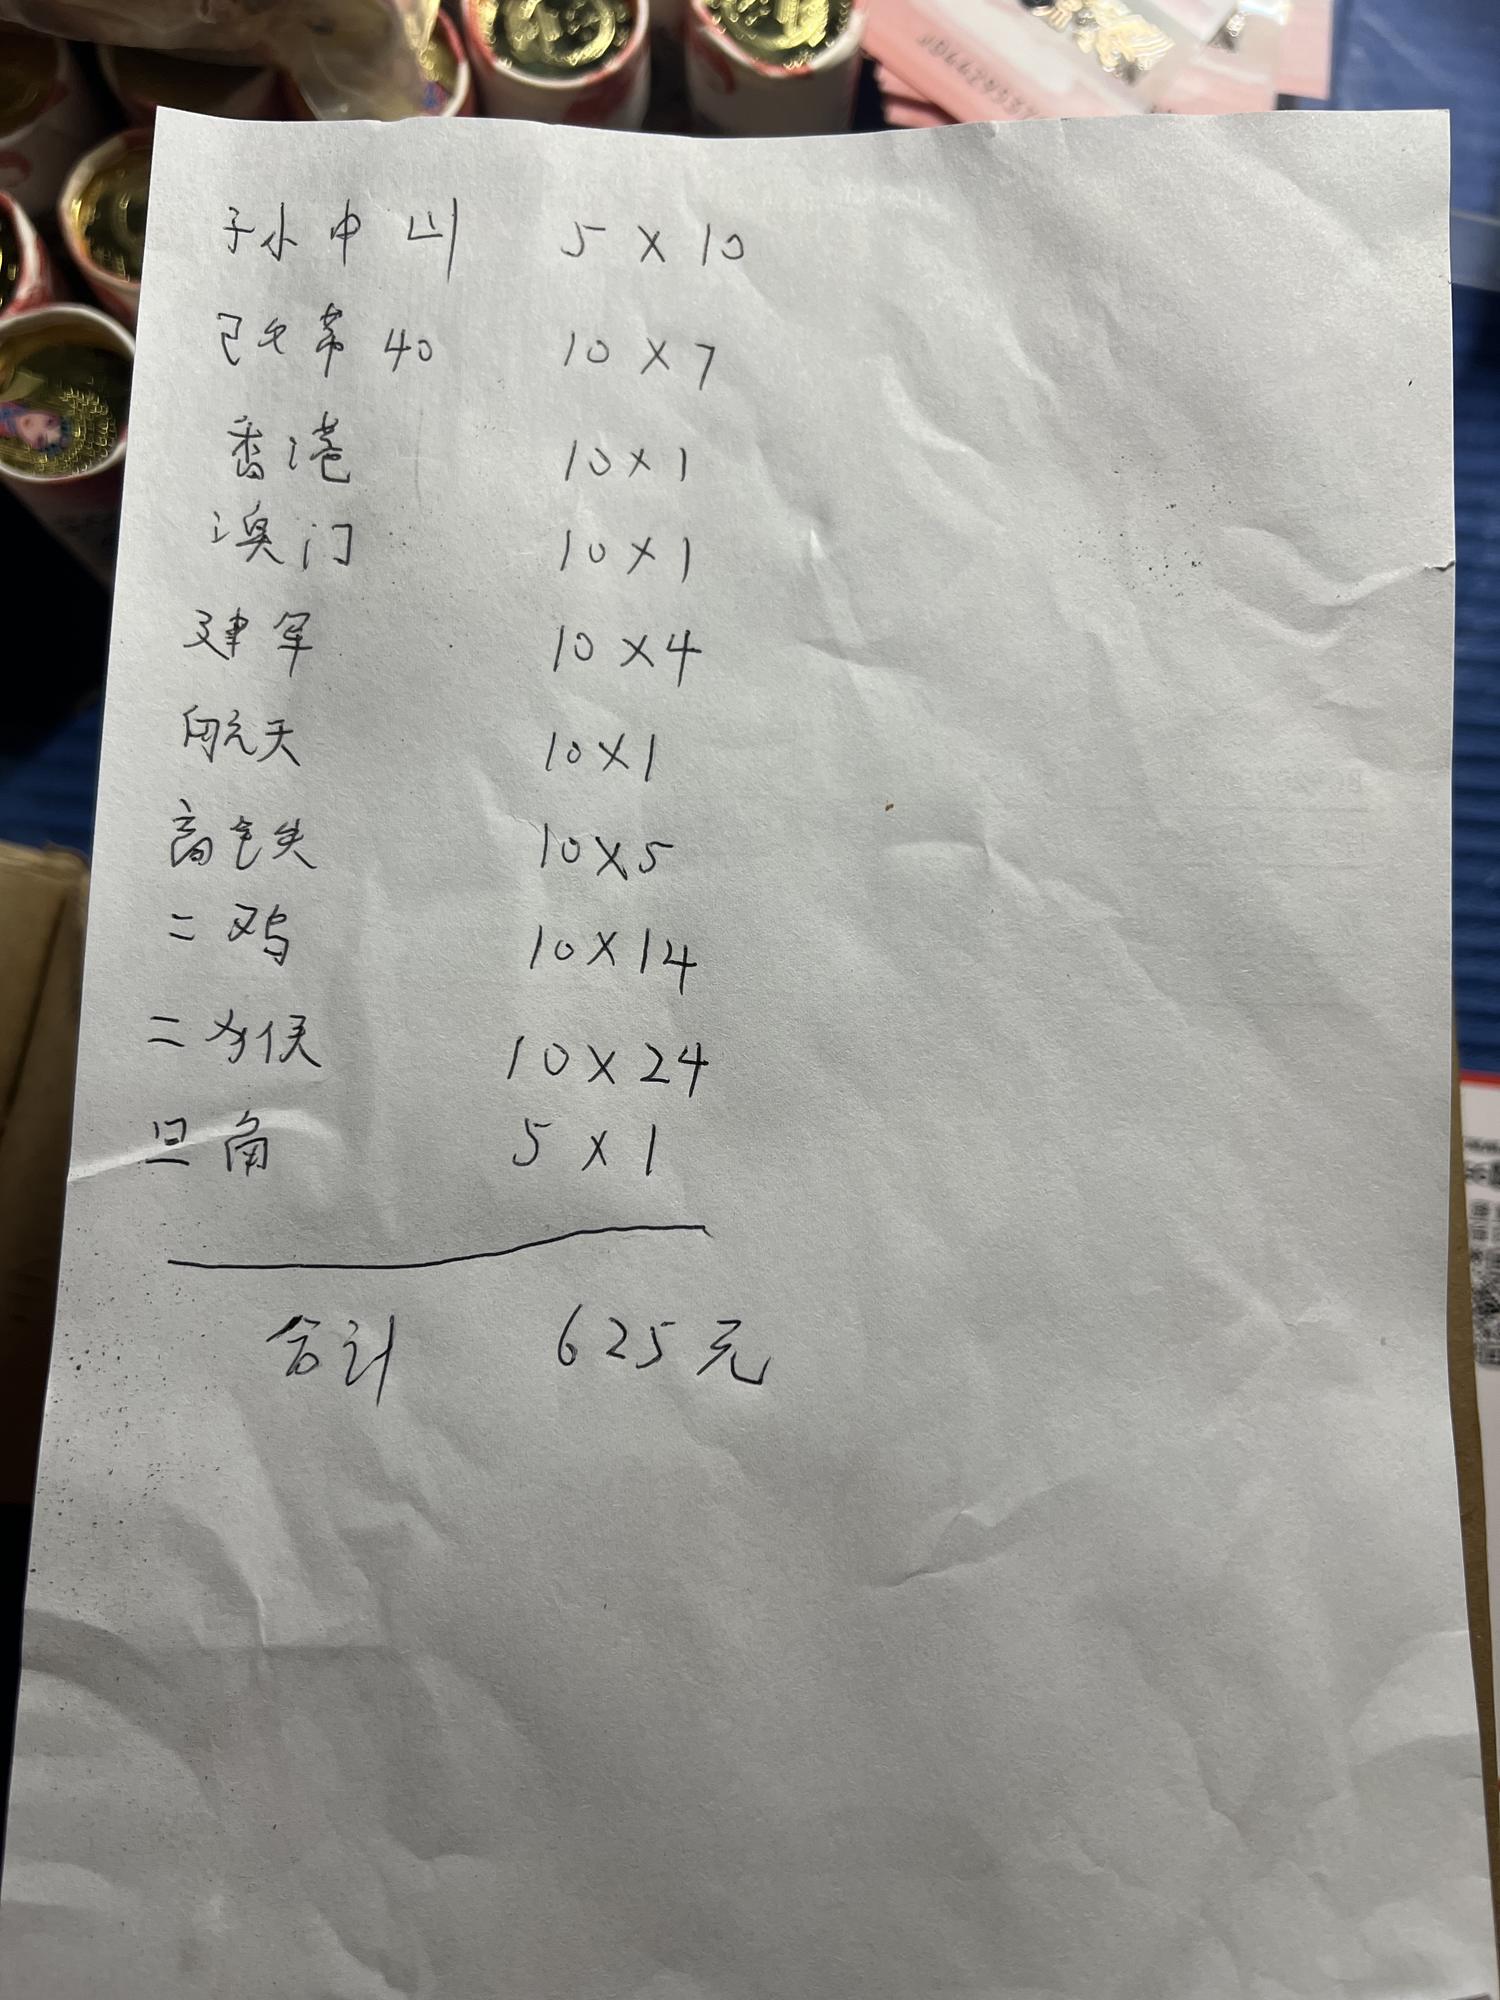 孙中山 5×10
改革40 10×7
香港 10×1
澳门 10×1
建军 10×4
航天 10×1
高铁 10×5
二鸡 10×14
二猴 10×24
旦角 5×1
合计 625元